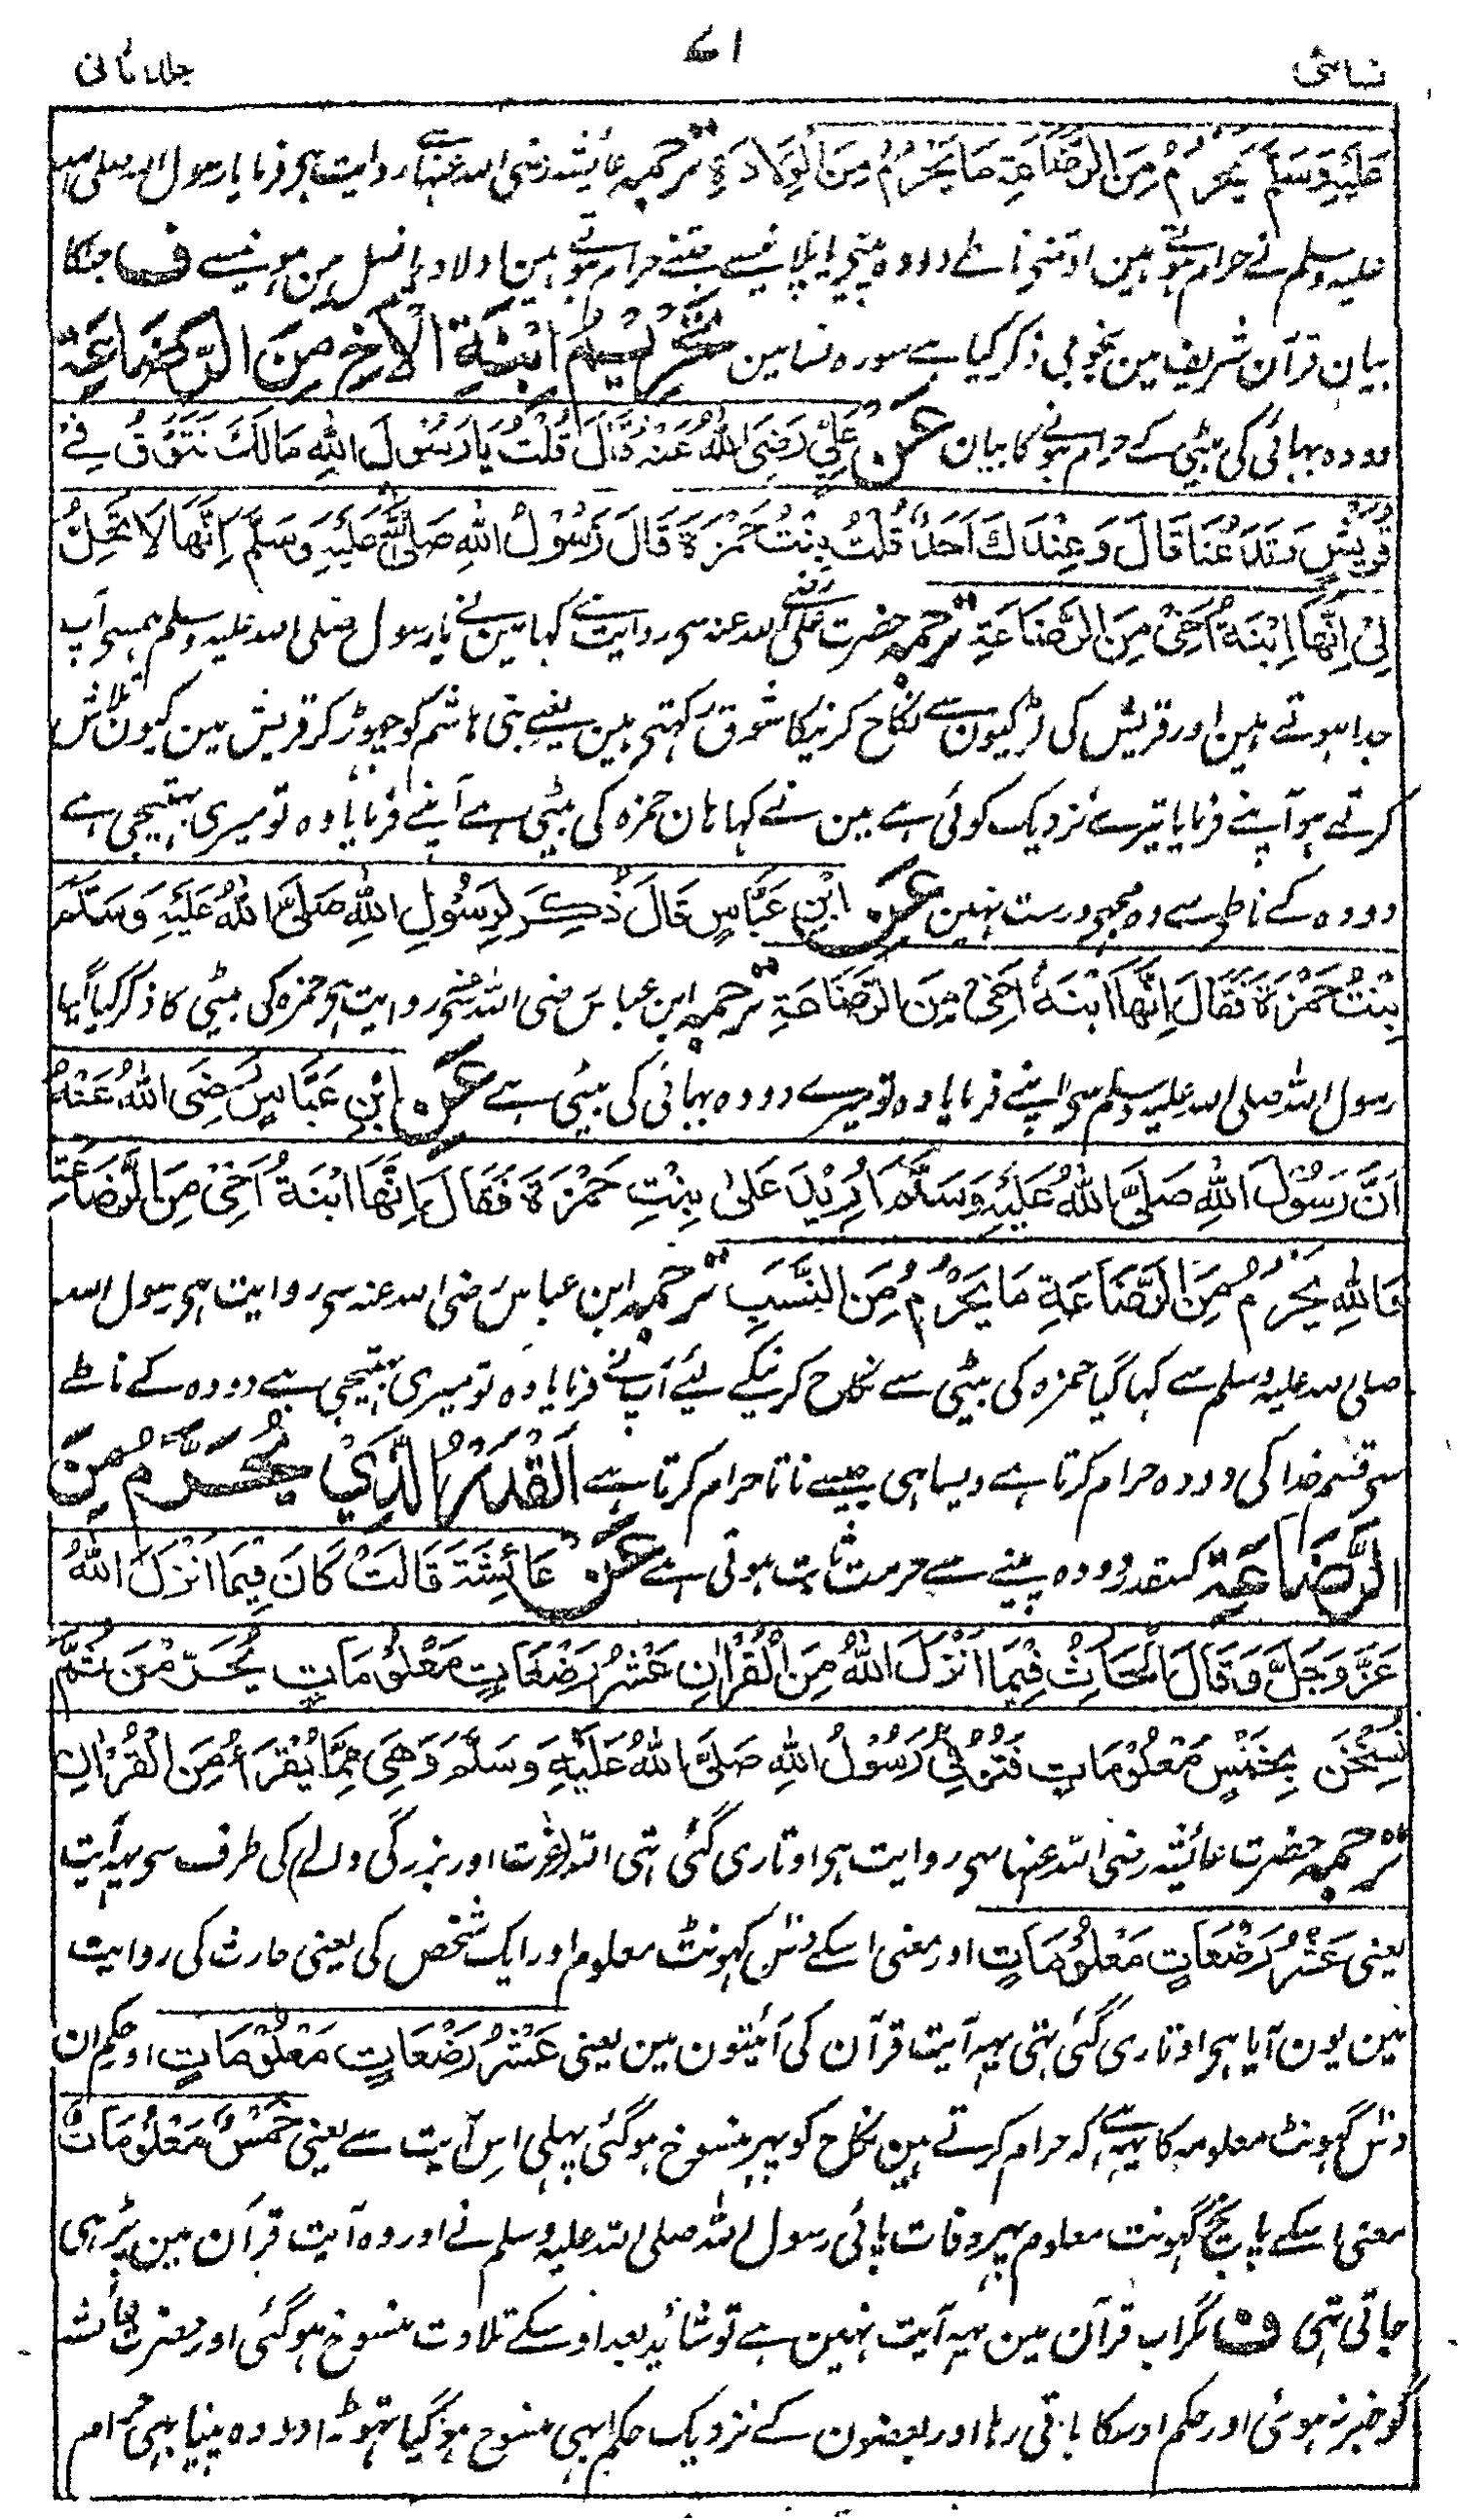 نسائی ۷۱ جلد ثانی
عَلَيْهِ وَسَلَّمَ يَحْرُمُ مِنَ الرَّضَاعَةِ مَا يَحْرُمُ مِنَ الْوِلَادَةِ ترجمہ عائشہ رضی اللہ عنہا سے روایت ہی فرمایا رسول اللہ صلی اللہ
علیہ وسلم نے حرام ہوتے ہین اوتنی ناطے دودہ پیجی پلانیسے جتنے حرام ہوتے ہین اولاد یا نسل مین ہونیسے ف جنکا
بیان قرآن شریف مین بخوبی ذکر کیا ہے سورہ نسا مین تَحْرِيْمُ ابْنَةِ الْأَخِ مِنَ الرَّضَاعَةِ
دودہ بہائی کی بیٹی کے حرام ہونے کا بیان عَنْ عَلِيٍّ رَضِيَ اللهُ عَنْهُ قَالَ قُلْتُ يَا رَسُوْلَ اللهِ مَالَكَ تَتَوَّقُ فِے
قُرَيْشٍ وَتَدَعُنَا قَالَ وَعِنْدَكَ أَحَدٌ قُلْتُ بِنْتُ حَمْزَةَ قَالَ رَسُوْلُ اللهِ صَلَّى اللهُ عَلَيْهِ وَسَلَّمَ إِنَّهَا لَا تَحِلُّ
لِيْ إِنَّهَا ابْنَةُ أَخِيْ مِنَ الرَّضَاعَةِ ترجمہ حضرت علی رضی اللہ عنہ سی روایت ہے کہا مین نے یا رسول صلی اللہ علیہ وسلم ہمسی آپ
جدا ہوتے ہین اور قریش کی لڑکیون سے نکاح کرنیکا شوق رکہتے ہین یعنے بنی ہاشم کو چہوڑ کر قریش مین کیون تلاش
کرتے ہو آپنے فرمایا تیرے نزدیک کوئی ہے مین نے کہا ہان حمزہ کی بیٹی ہے آپنے فرمایا وہ تو میری بہتیجی ہے
دودہ کے ناطے سے وہ مجہی درست نہین عَنِ ابْنِ عَبَّاسٍ قَالَ ذُكِرَ لِرَسُوْلِ اللهِ صَلَّى اللهُ عَلَيْهِ وَسَلَّمَ
بِنْتُ حَمْزَةَ فَقَالَ إِنَّهَا ابْنَةُ أَخِيْ مِنَ الرَّضَاعَةِ ترجمہ ابن عباس رضی اللہ عنہ سے روایت ہی حمزہ کی بیٹی کا ذکر کیا گیا
رسول اللہ صلی اللہ علیہ وسلم سی آپنے فرمایا وہ تو میرے دودہ بہائی کی بیٹی ہے عَنِ ابْنِ عَبَّاسٍ رَضِيَ اللهُ عَنْهُ
أَنَّ رَسُوْلَ اللهِ صَلَّى اللهُ عَلَيْهِ وَسَلَّمَ أُرِيْدَ عَلىٰ بِنْتِ حَمْزَةَ فَقَالَ إِنَّهَا ابْنَةُ أَخِيْ مِنَ الرَّضَاعَةِ
فَاللهِ يَحْرُمُ مِنَ الرَّضَاعَةِ مَا يَحْرُمُ مِنَ النَّسَبِ ترجمہ ابن عباس رضی اللہ عنہ سی روایت ہی رسول اللہ
صلی اللہ علیہ وسلم سے کہا گیا حمزہ کی بیٹی سے نکاح کرنیکے لیے آپ نے فرمایا وہ تو میری بہتیجی ہے دودہ کے ناطے
سی قسم خدا کی دودہ حرام کرتا ہے ویسا ہی جیسے ناتا حرام کرتا ہے اَلْقَدْرُ الَّذِيْ يُحَرِّمُ مِنَ
الرَّضَاعَةِ کسقدر دودہ پینے سے حرمت ثابت ہوتی ہے عَنْ عَائِشَةَ قَالَتْ كَانَ فِيْمَا أَنْزَلَ اللهُ
عَزَّ وَجَلَّ وَقَالَ الْحَارِثُ فِيْمَا أَنْزَلَ اللهُ مِنَ الْقُرْآنِ عَشْرُ رَضَعَاتٍ مَعْلُوْمَاتٍ يُحَرِّمْنَ ثُمَّ
نُسِخْنَ بِخَمْسٍ مَعْلُوْمَاتٍ فَتُوُفِّيَ رَسُوْلُ اللهِ صَلَّى اللهُ عَلَيْهِ وَسَلَّمَ وَهِيَ مِمَّا يُقْرَأُ مِنَ الْقُرْآنِ
ترجمہ حضرت عائشہ رضی اللہ عنہا سی روایت ہی اوتاری گئی تہی اللہ عزت اور بزرگی والے کی طرف سی یہہ آیت
یعنی عَشْرُ رَضَعَاتٍ مَعْلُوْمَاتٍ اور معنی اسکے دس گہونٹ معلوم اور ایک شخص کی یعنی حارث کی روایت
مین یون آیا ہی اوتاری گئی تہی یہہ آیت قرآن کی آیتون مین یعنی عَشْرُ رَضَعَاتٍ مَعْلُوْمَاتٍ اور حکم ان
دس گہونٹ معلومہ کا یہہ ہے کہ حرام کرتے ہین نکاح کو پہر منسوخ ہوگئی پہلی اس آیت سے یعنی خَمْسٌ مَعْلُوْمَاتٌ
معنی اسکے پانچ گہونٹ معلوم پہر وفات پائی رسول اللہ صلی اللہ علیہ وسلم نے اور وہ آیت قرآن مین پڑہی
جاتی تہی ف مگر اب قرآن مین یہہ آیت نہین ہے تو شائد بعد اوسکے تلاوت منسوخ ہوگئی اور حضرت عائشہ
کو خبر نہ ہوئی اور حکم اوسکا باقی رہا اور بعضون کے نزدیک حکم بہی منسوخ ہوگیا تہوڑا دودہ پینا بہی حرام